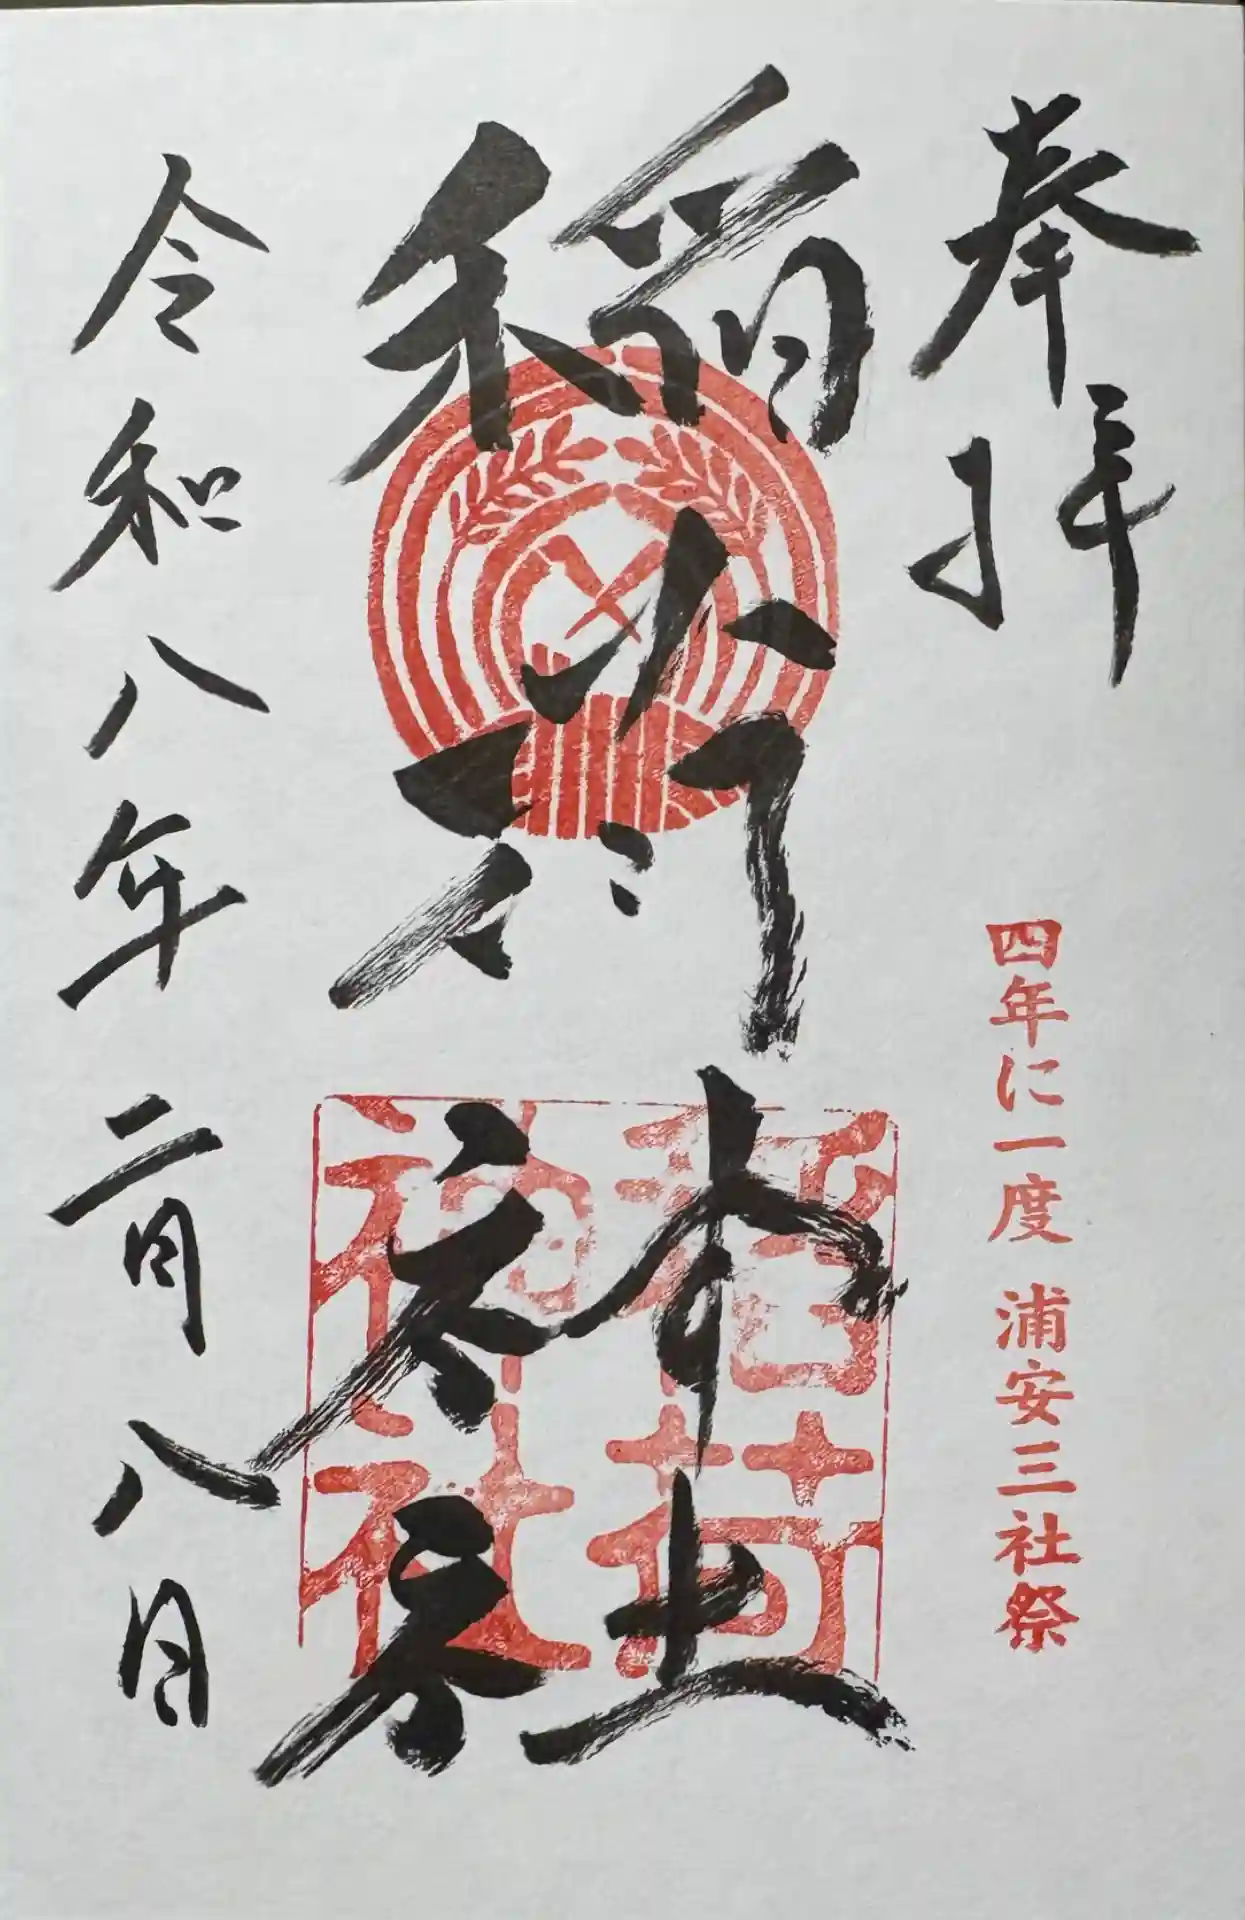 奉拝
四年に一度 浦安三社祭
稲荷神社
稲荷神社
令和八年二月八日